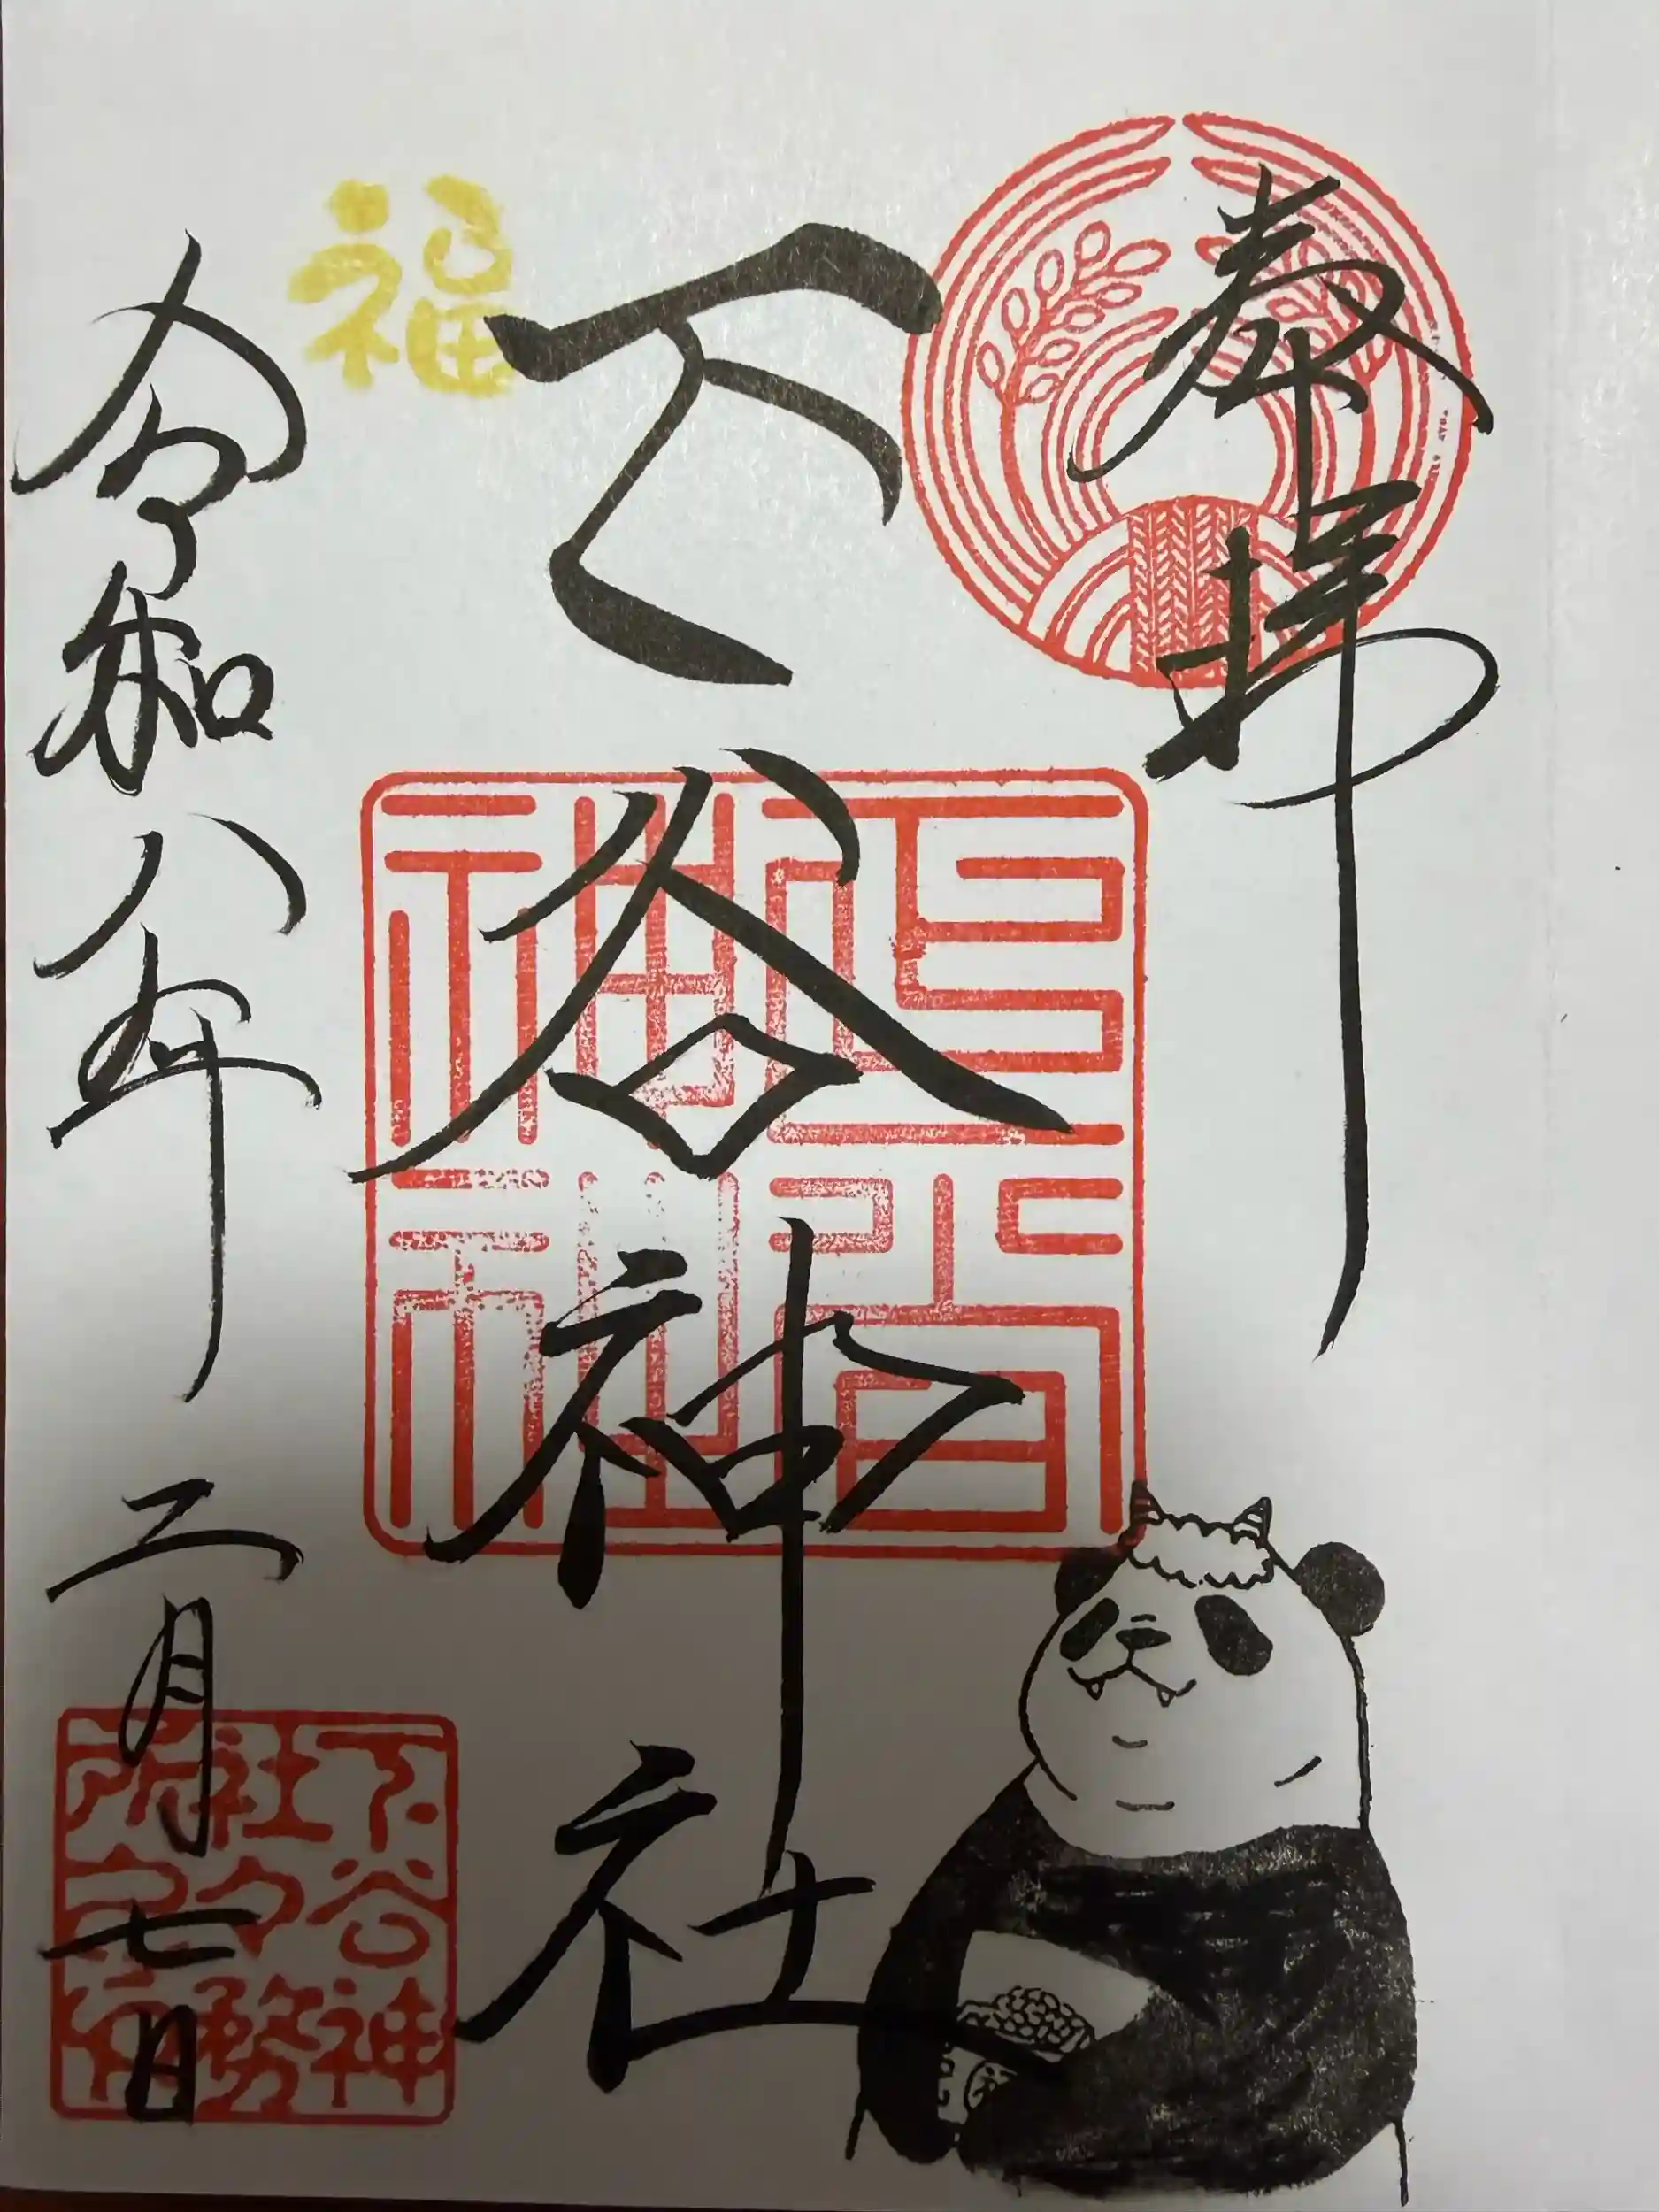 奉拝
下谷神社
福
令和八年二月七日
下谷神
社務
所之印